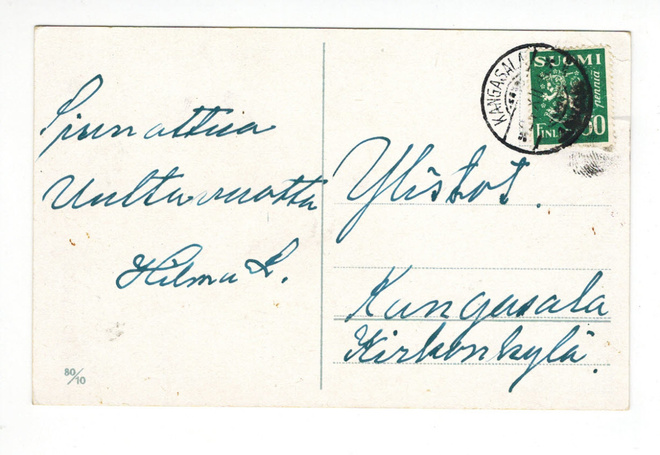 Siunattua
Uuttavuotta
Hilma L.
80/10
KANGASALA
SUOMI
penniä
FINLAND
Ylistot.
Kangasala
Kirkonkylä.